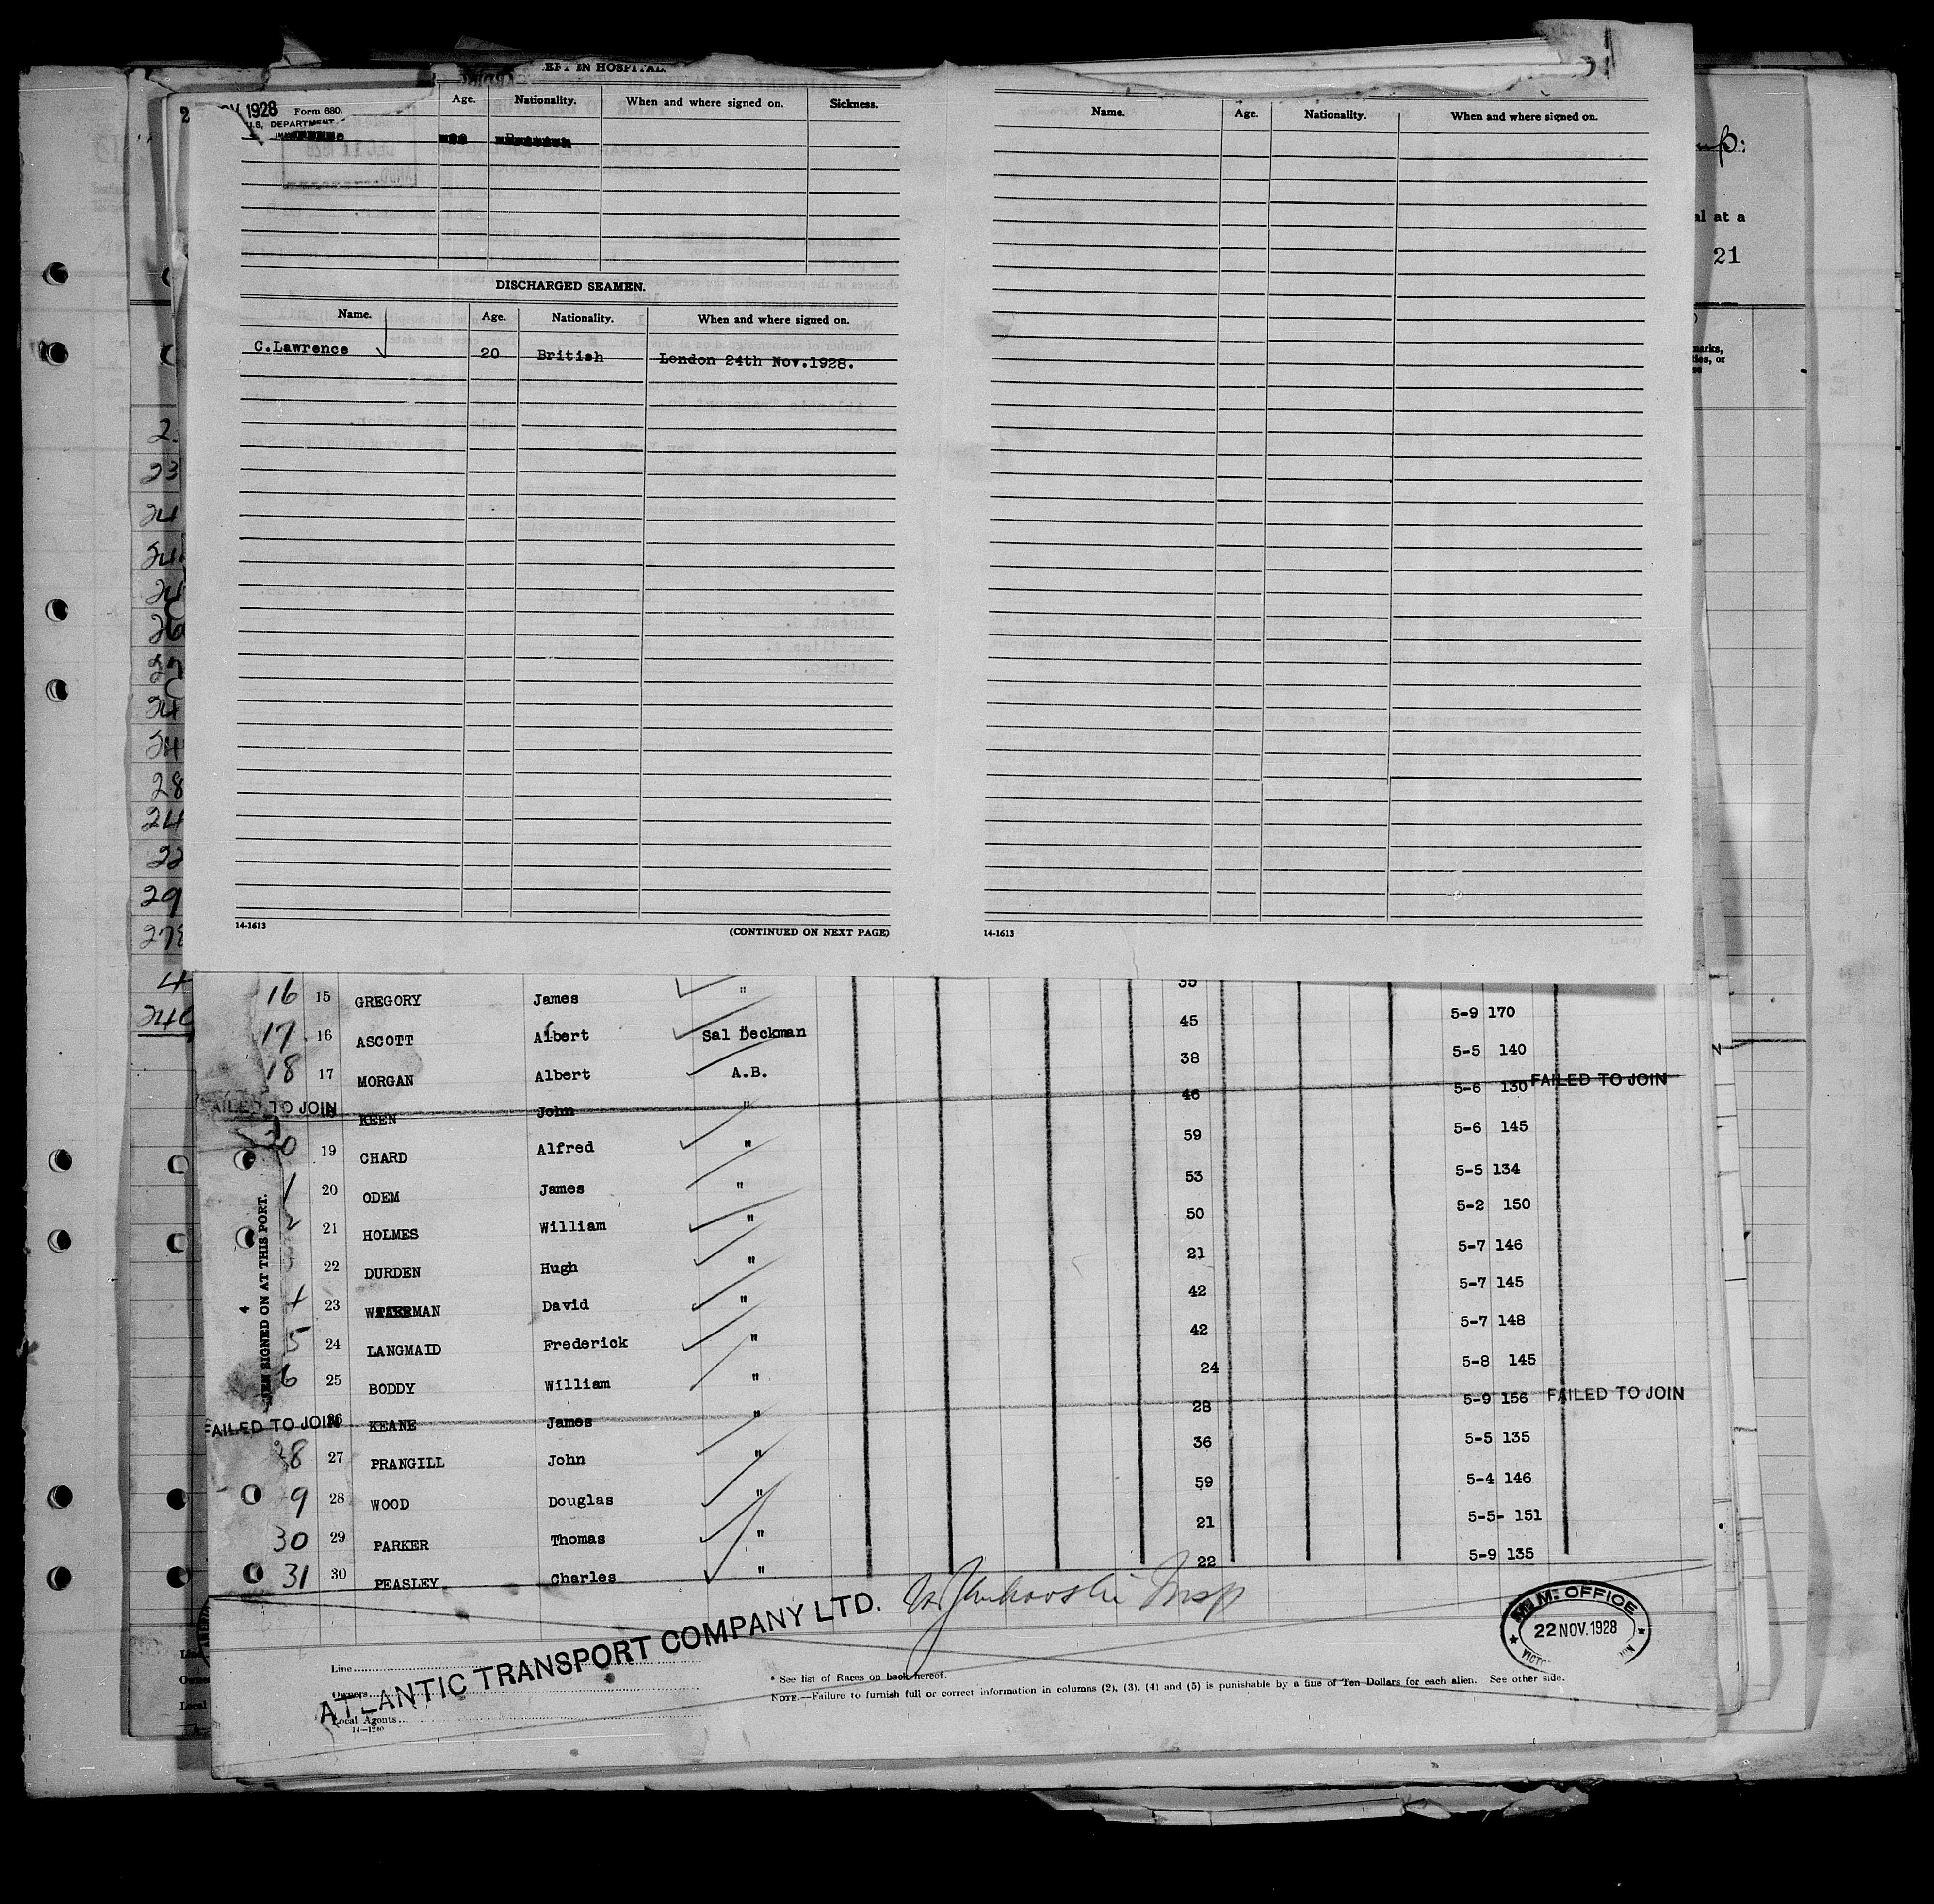 V 1928 Form 680.
U.S. DEPARTMENT
EFT IN HOSPITAL.
Age. Nationality. When and where signed on. Sickness.
DISCHARGED SEAMEN.
Name. Age. Nationality. When and where signed on.
C.Lawrence 20 British London 24th Nov.1928.
14-1613 (CONTINUED ON NEXT PAGE)
Name. Age. Nationality. When and where signed on.
14-1613
al at a
21
marks,
ties, or
23
24
27
24
28
24
22
29
16 15 GREGORY James " 35
17 16 ASCOTT Albert Sal Deckman 45 5-9 170
18 17 MORGAN Albert A.B. 38 5-5 140
FAILED TO JOIN KEEN John " 46 5-6 130 FAILED TO JOIN
20 19 CHARD Alfred " 59 5-6 145
1 20 ODEM James " 53 5-5 134
2 21 HOLMES William " 50 5-2 150
22 DURDEN Hugh " 21 5-7 146
4 23 WATERMAN David " 42 5-7 145
5 24 LANGMAID Frederick " 42 5-7 148
6 25 BODDY William " 24 5-8 145
FAILED TO JOIN 26 KEANE James " 28 5-9 156 FAILED TO JOIN
28 27 PRANGILL John " 36 5-5 135
9 28 WOOD Douglas " 59 5-4 146
30 29 PARKER Thomas " 21 5-5- 151
31 30 PEASLEY Charles " 22 5-9 135
4
MEN SIGNED ON AT THIS PORT.
Line
Owners
Local Agents
14-1240
ATLANTIC TRANSPORT COMPANY LTD.
Insp
* See list of Races on back hereof.
NOTE.—Failure to furnish full or correct information in columns (2), (3), (4) and (5) is punishable by a fine of Ten Dollars for each alien. See other side.
M.M. OFFICE
22 NOV. 1928